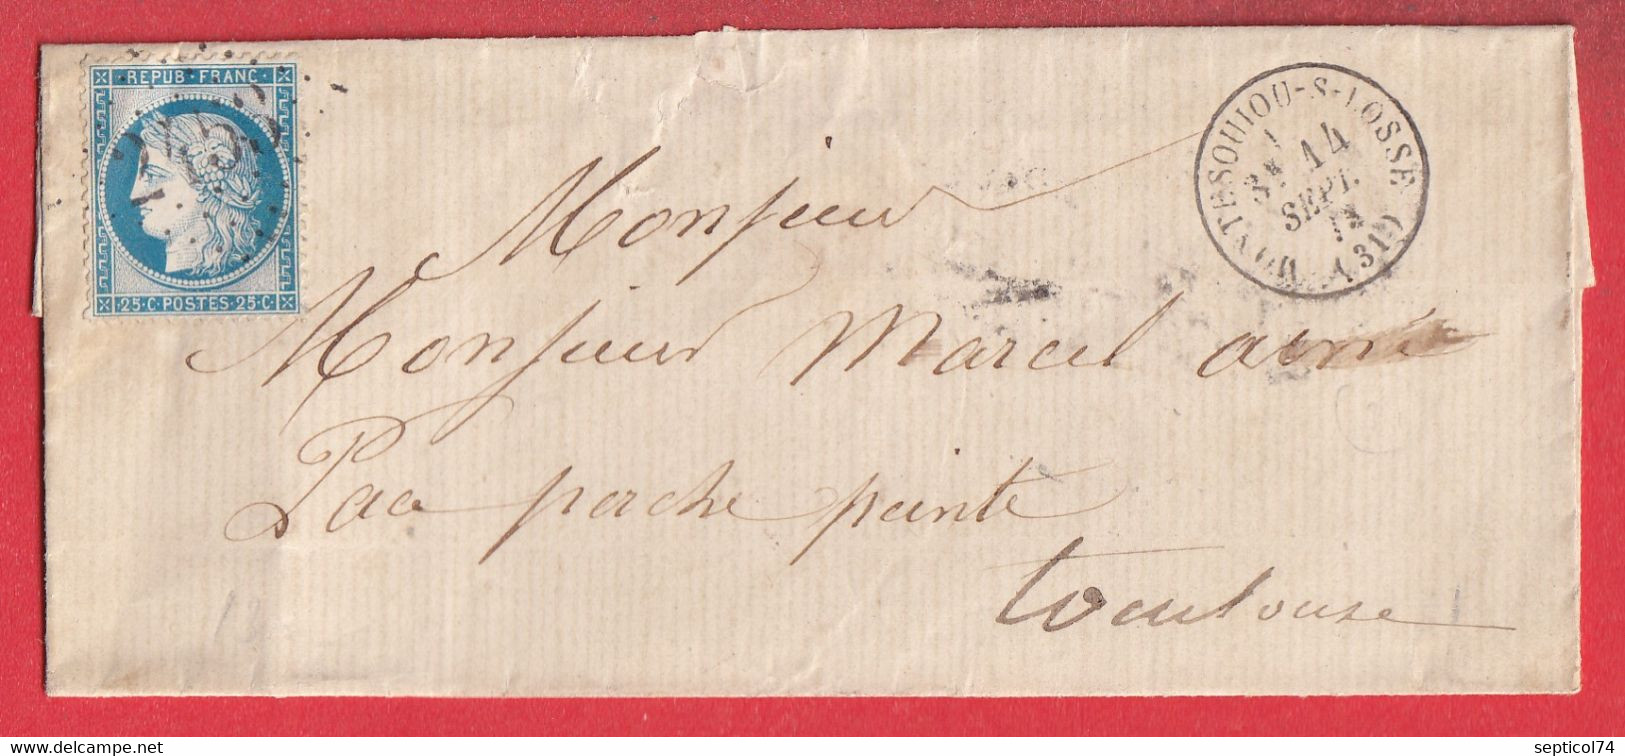 REPUB · FRANC ·
· 25 · C · POSTES · 25 · C ·
MONTESQUIOU-S-LOSSE (31)
14
SEPT.
Monsieur
Monsieur Marcel ainé
Place perche peinte
Toulouse
www.delcampe.net
septicol74